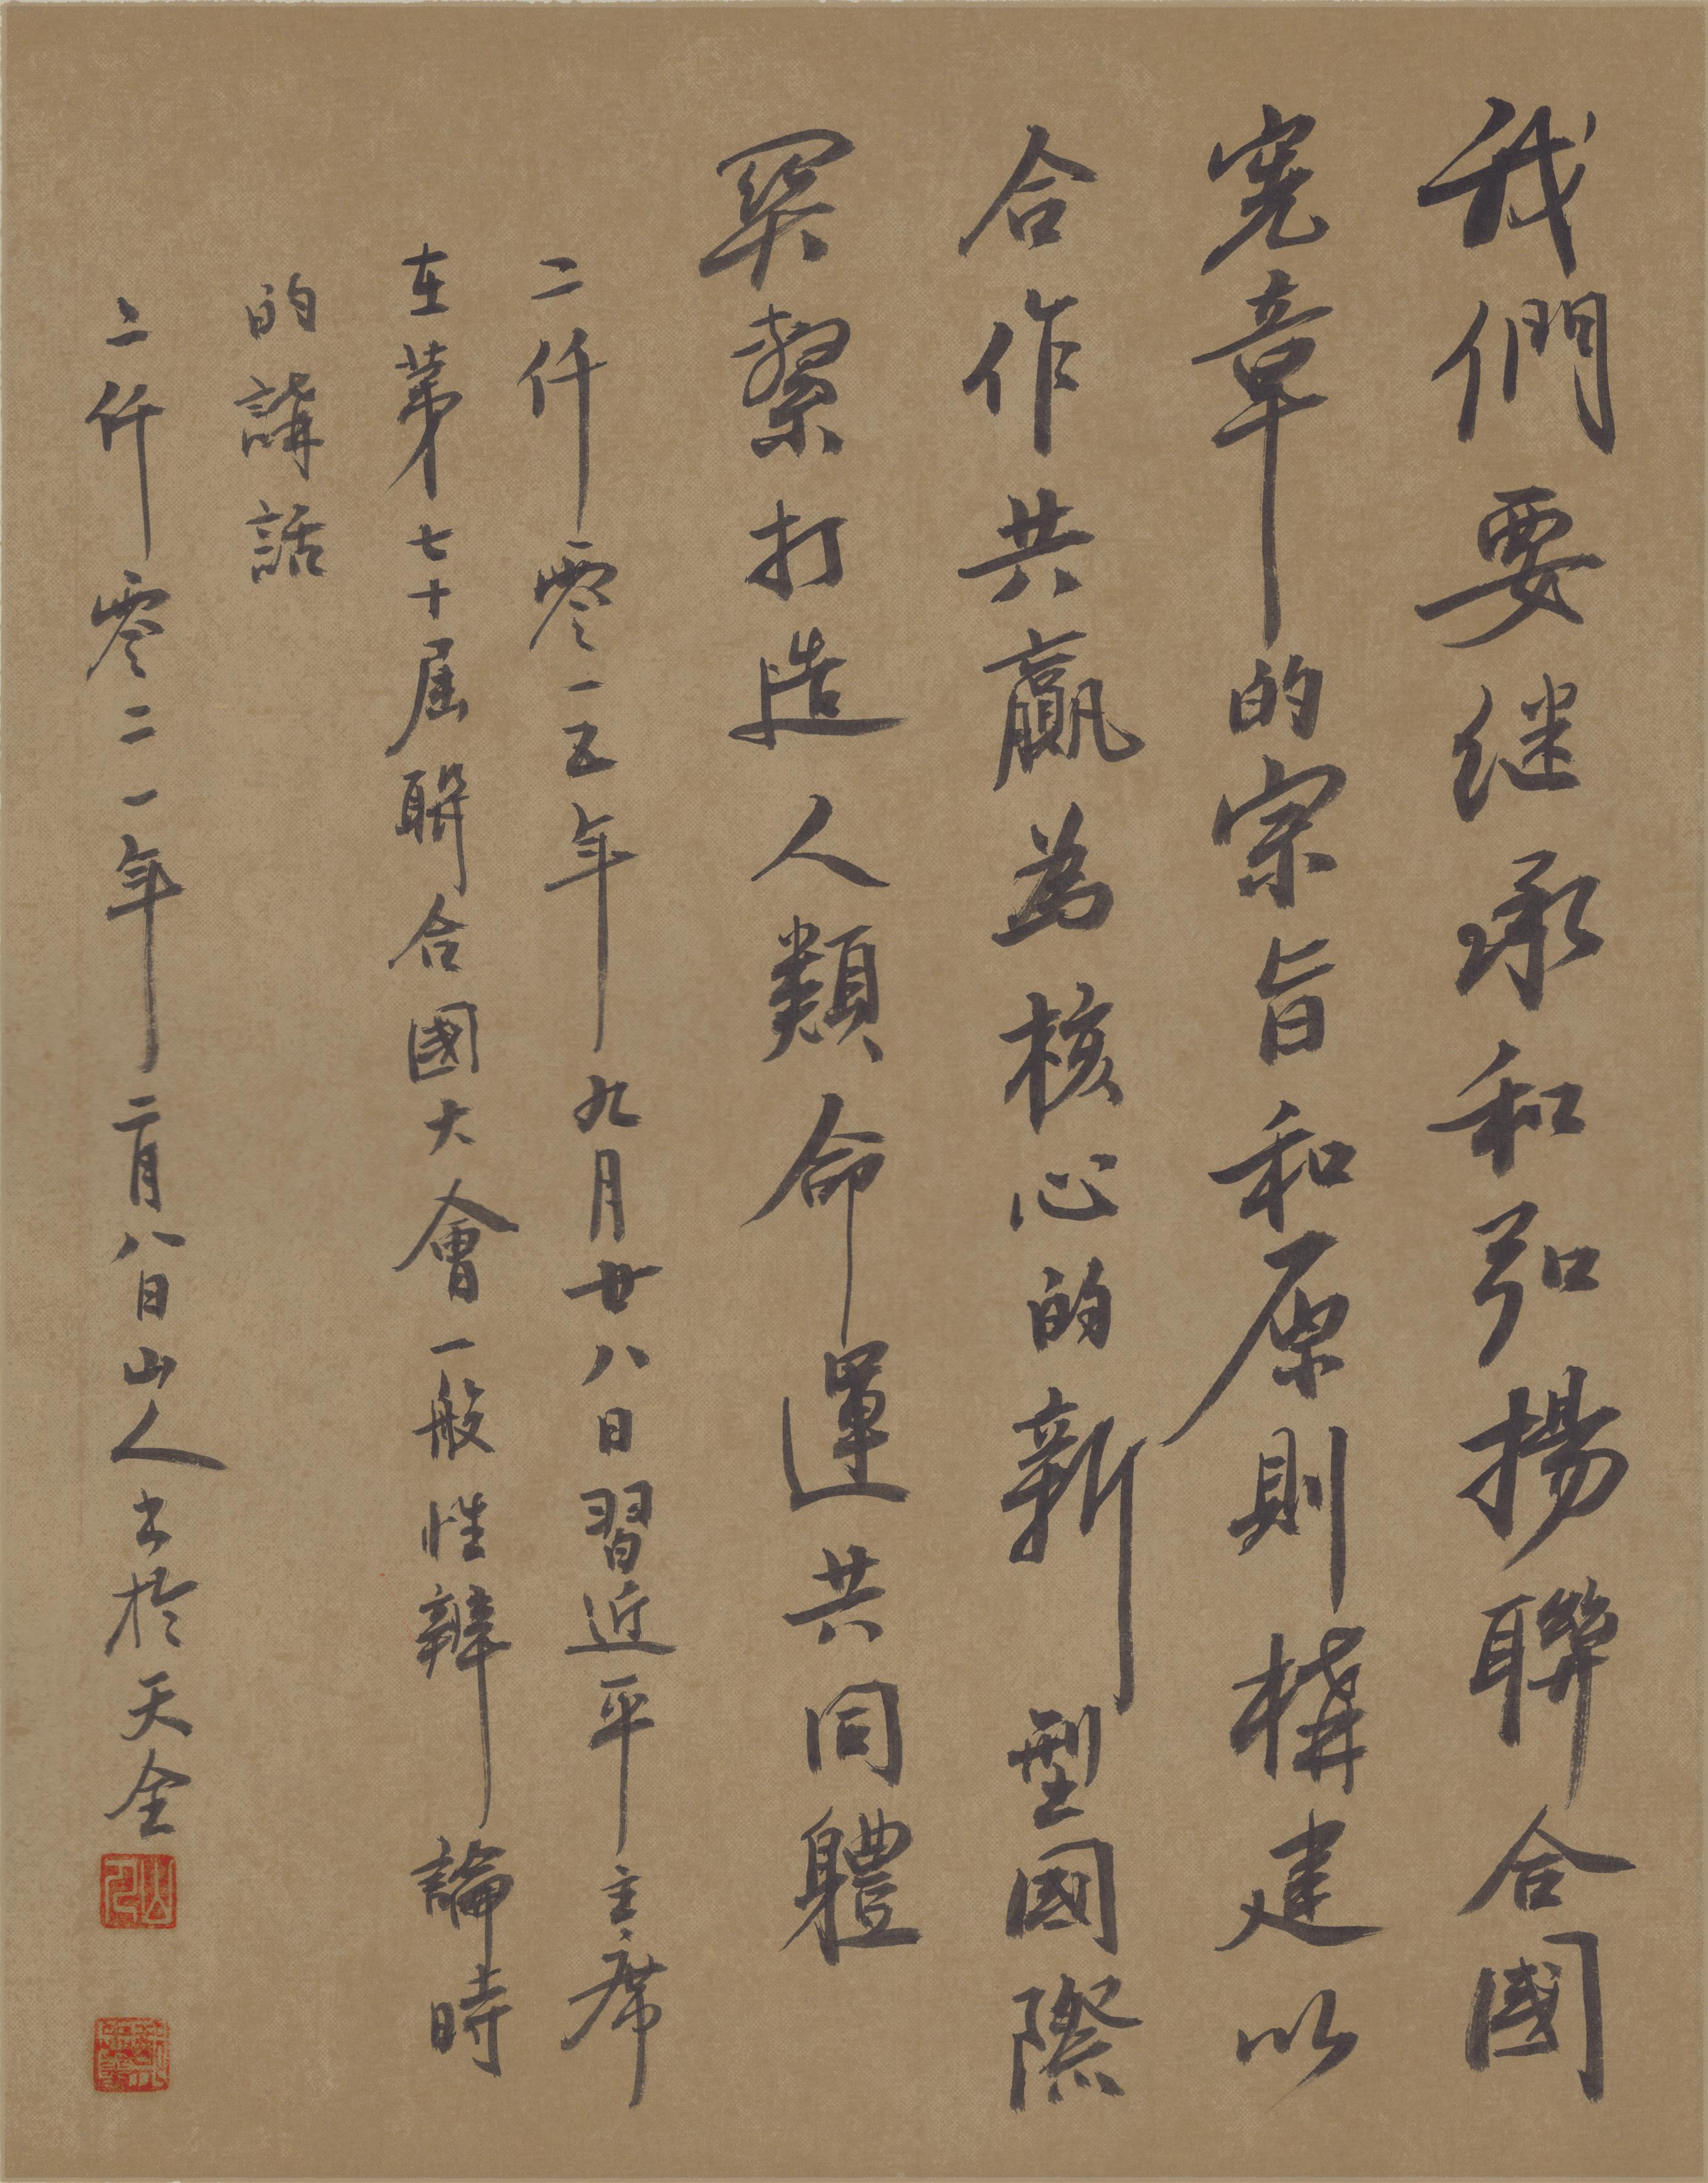 我們要继承和弘揚聯合國
宪章的宗旨和原則構建以
合作共贏為核心的新型國際
関繫打造人類命運共同體
二仟零一五年九月廿八日習近平主席
在第七十届聯合國大會一般性辯論時
的講話
二仟零二一年二月八日山人書於天全